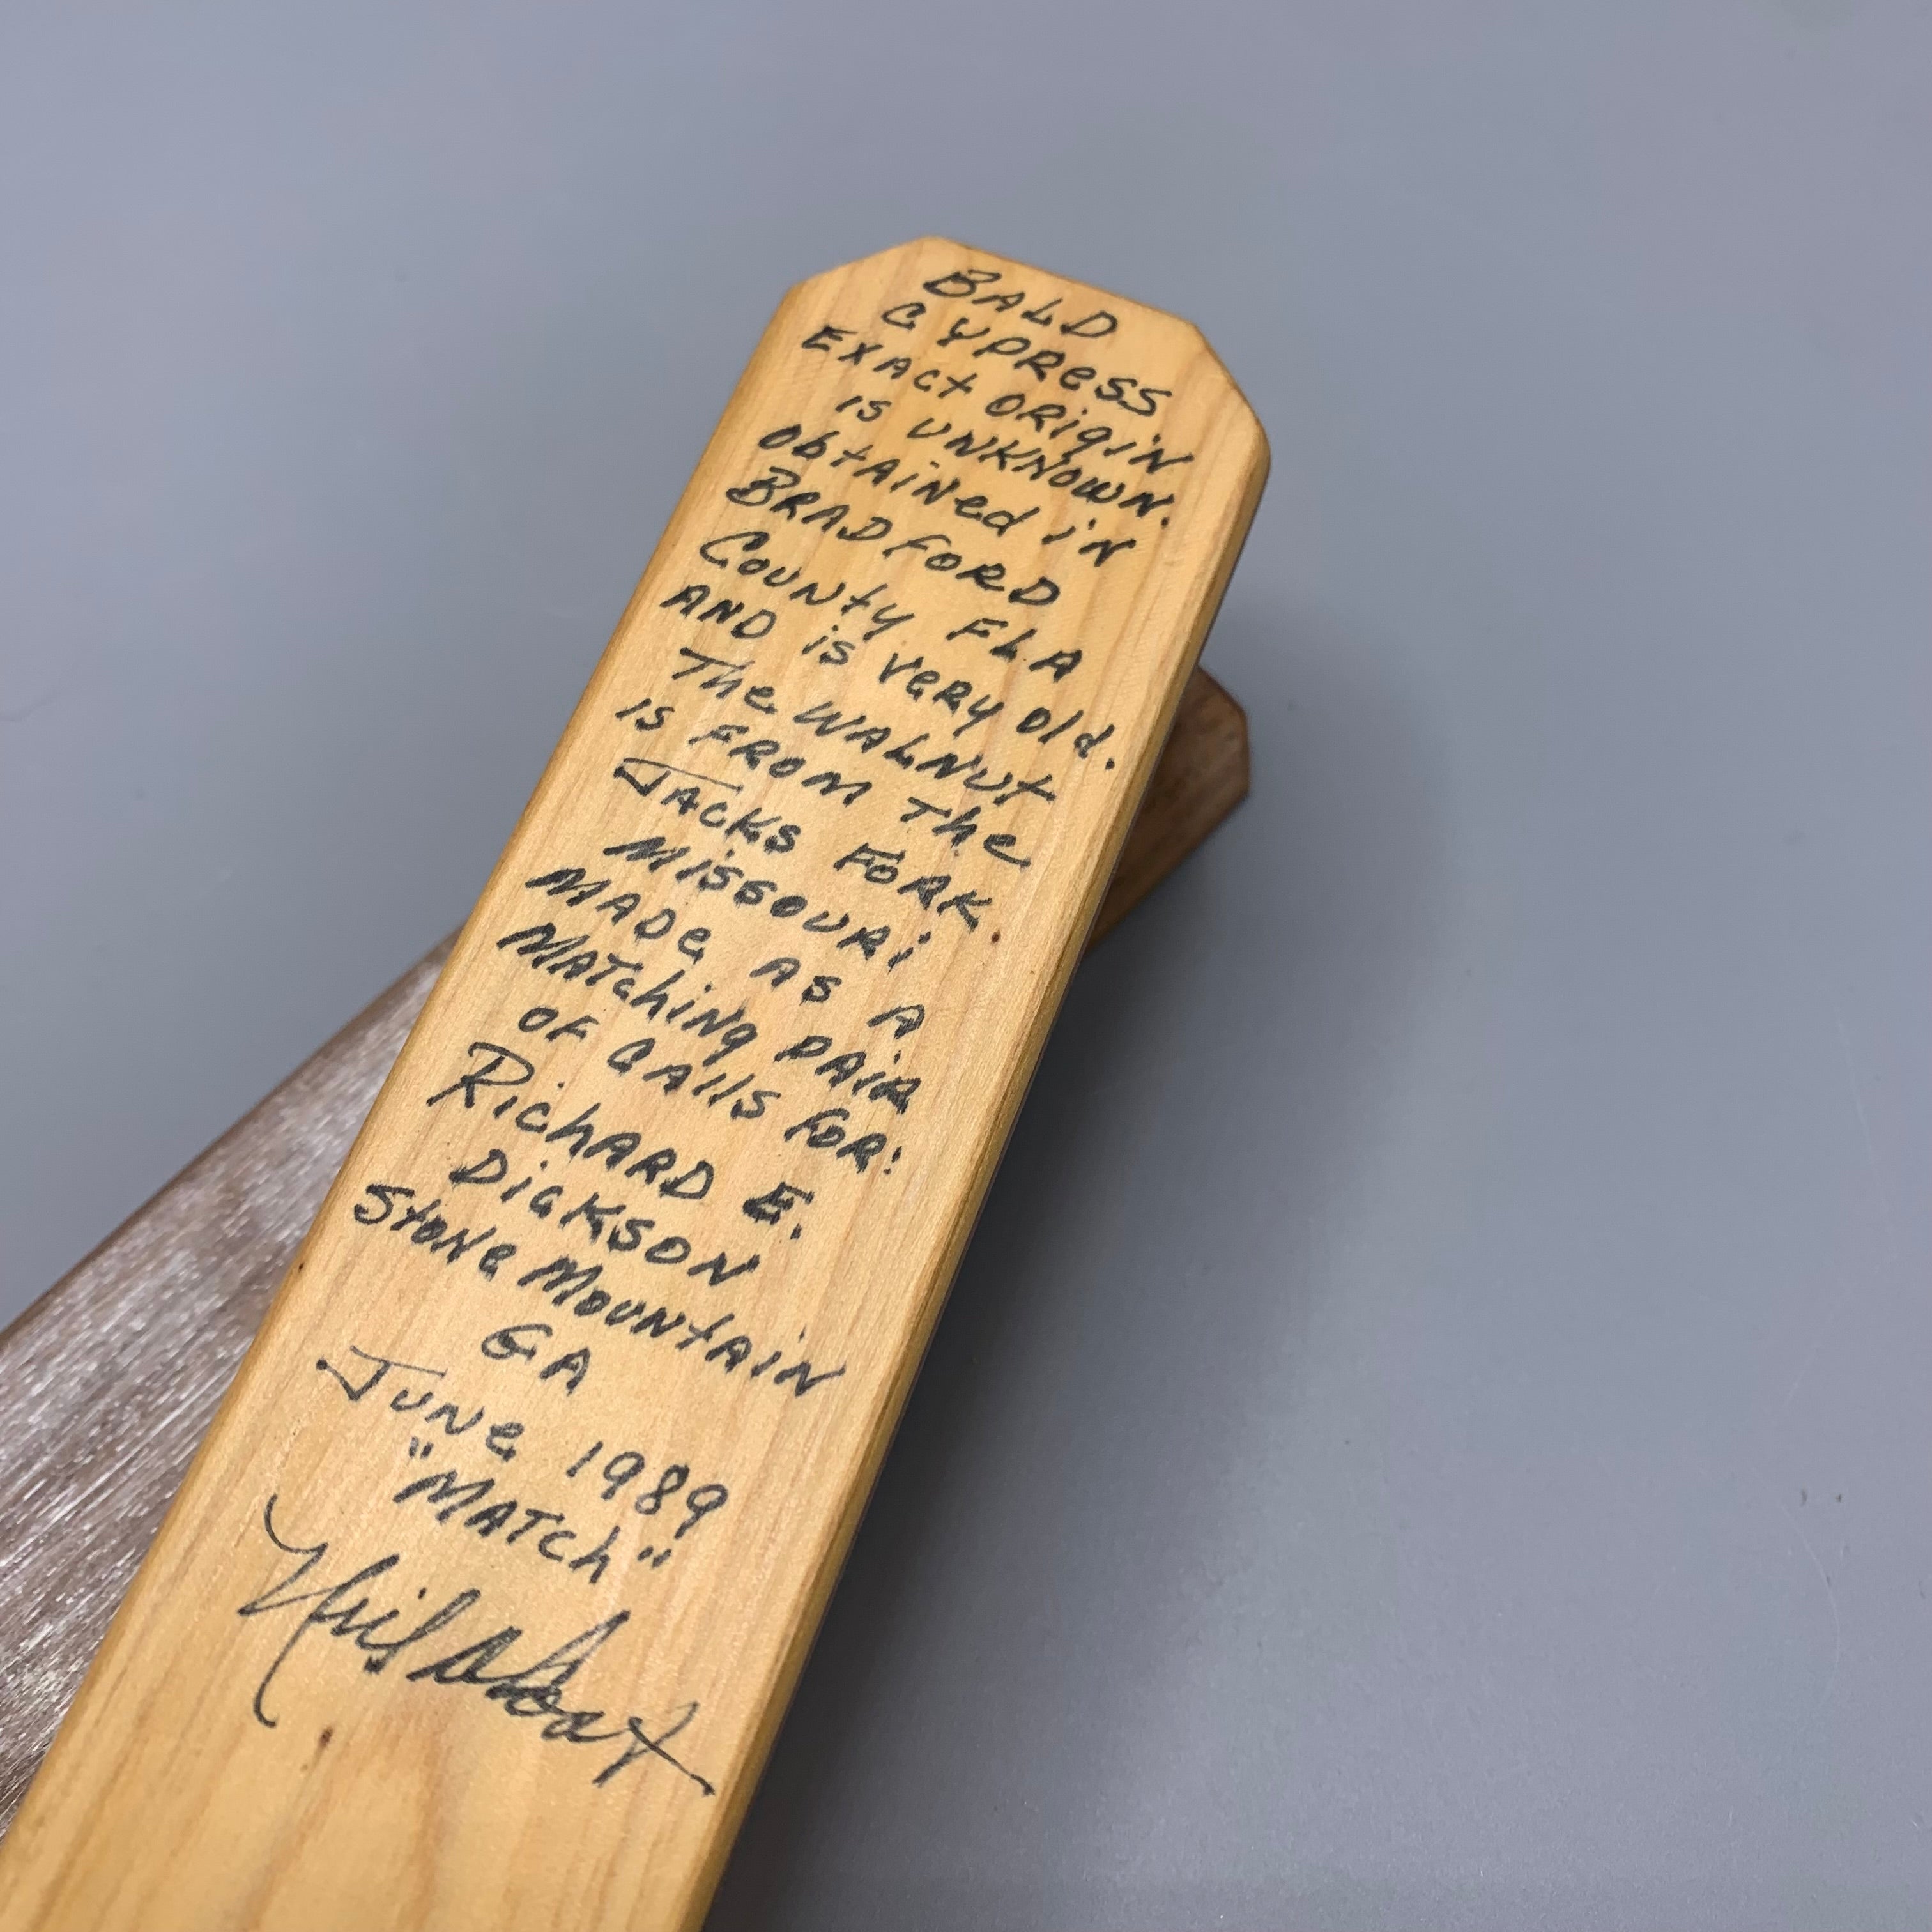 BALD
CYPRESS
EXACT ORIGIN
is UNKNOWN.
ObtAINed in
BRADFORD
County FLA
AND is very old.
The WALNUT
is FROM The
JACKS FORK
Missouri
MADe AS A
MATching PAIR
OF CAlls FOR:
RichARD E.
DicKSON
Stone Mountain
GA
June 1989
"MATCh"
Neil Cost